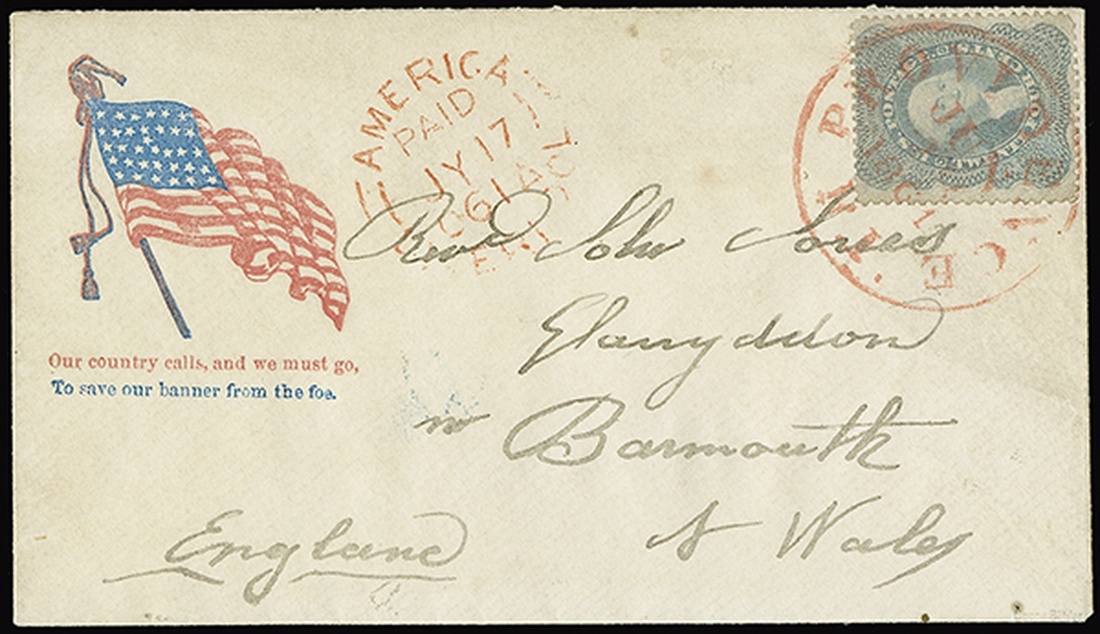 AMERICA
PAID
JY 17
61
PROVIDENCE
R.I.
Our country calls, and we must go,
To save our banner from the foe.
Revd John Jones
Glanyddon
nr Barmouth
N Wales
England